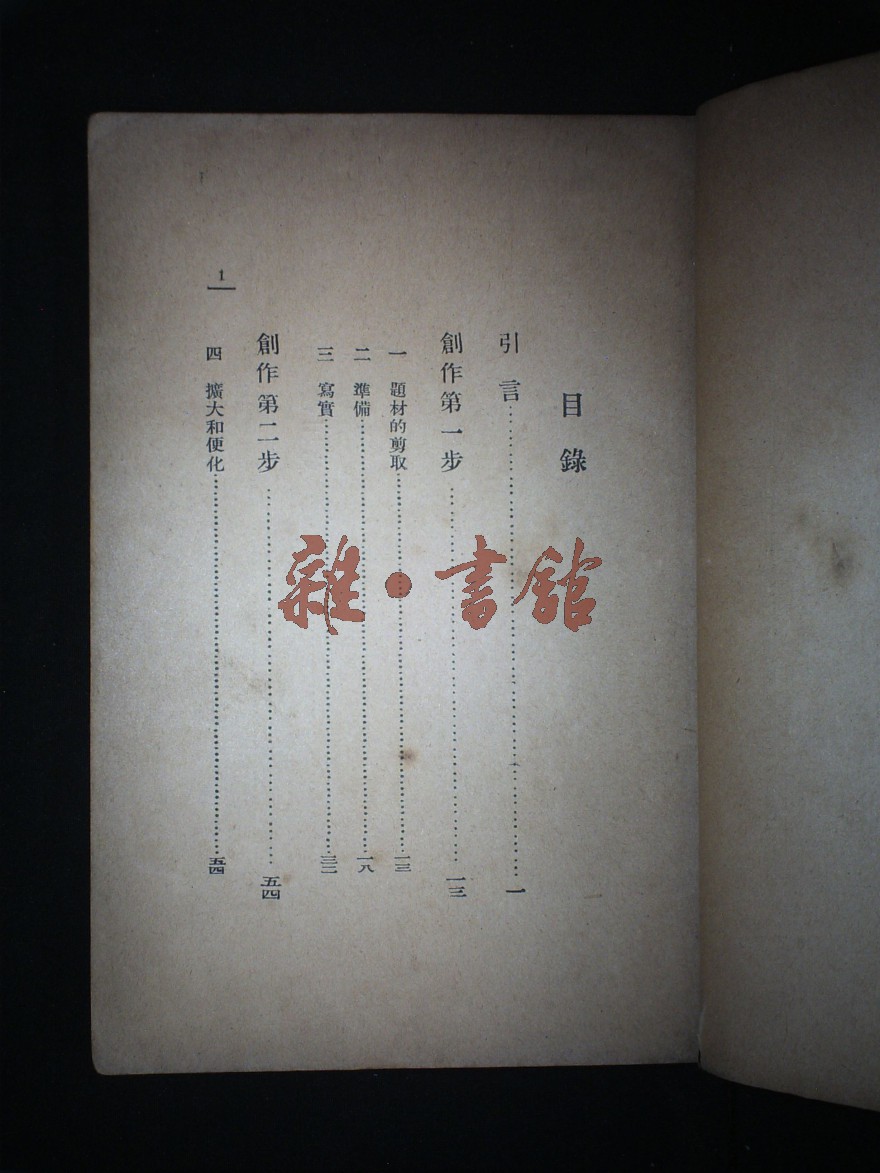 目錄
引言……一
創作第一步……一三
一 題材的剪取……一三
二 準備……一八
三 寫實……三二
創作第二步……五四
四 擴大和便化……五四
1
雜·書館